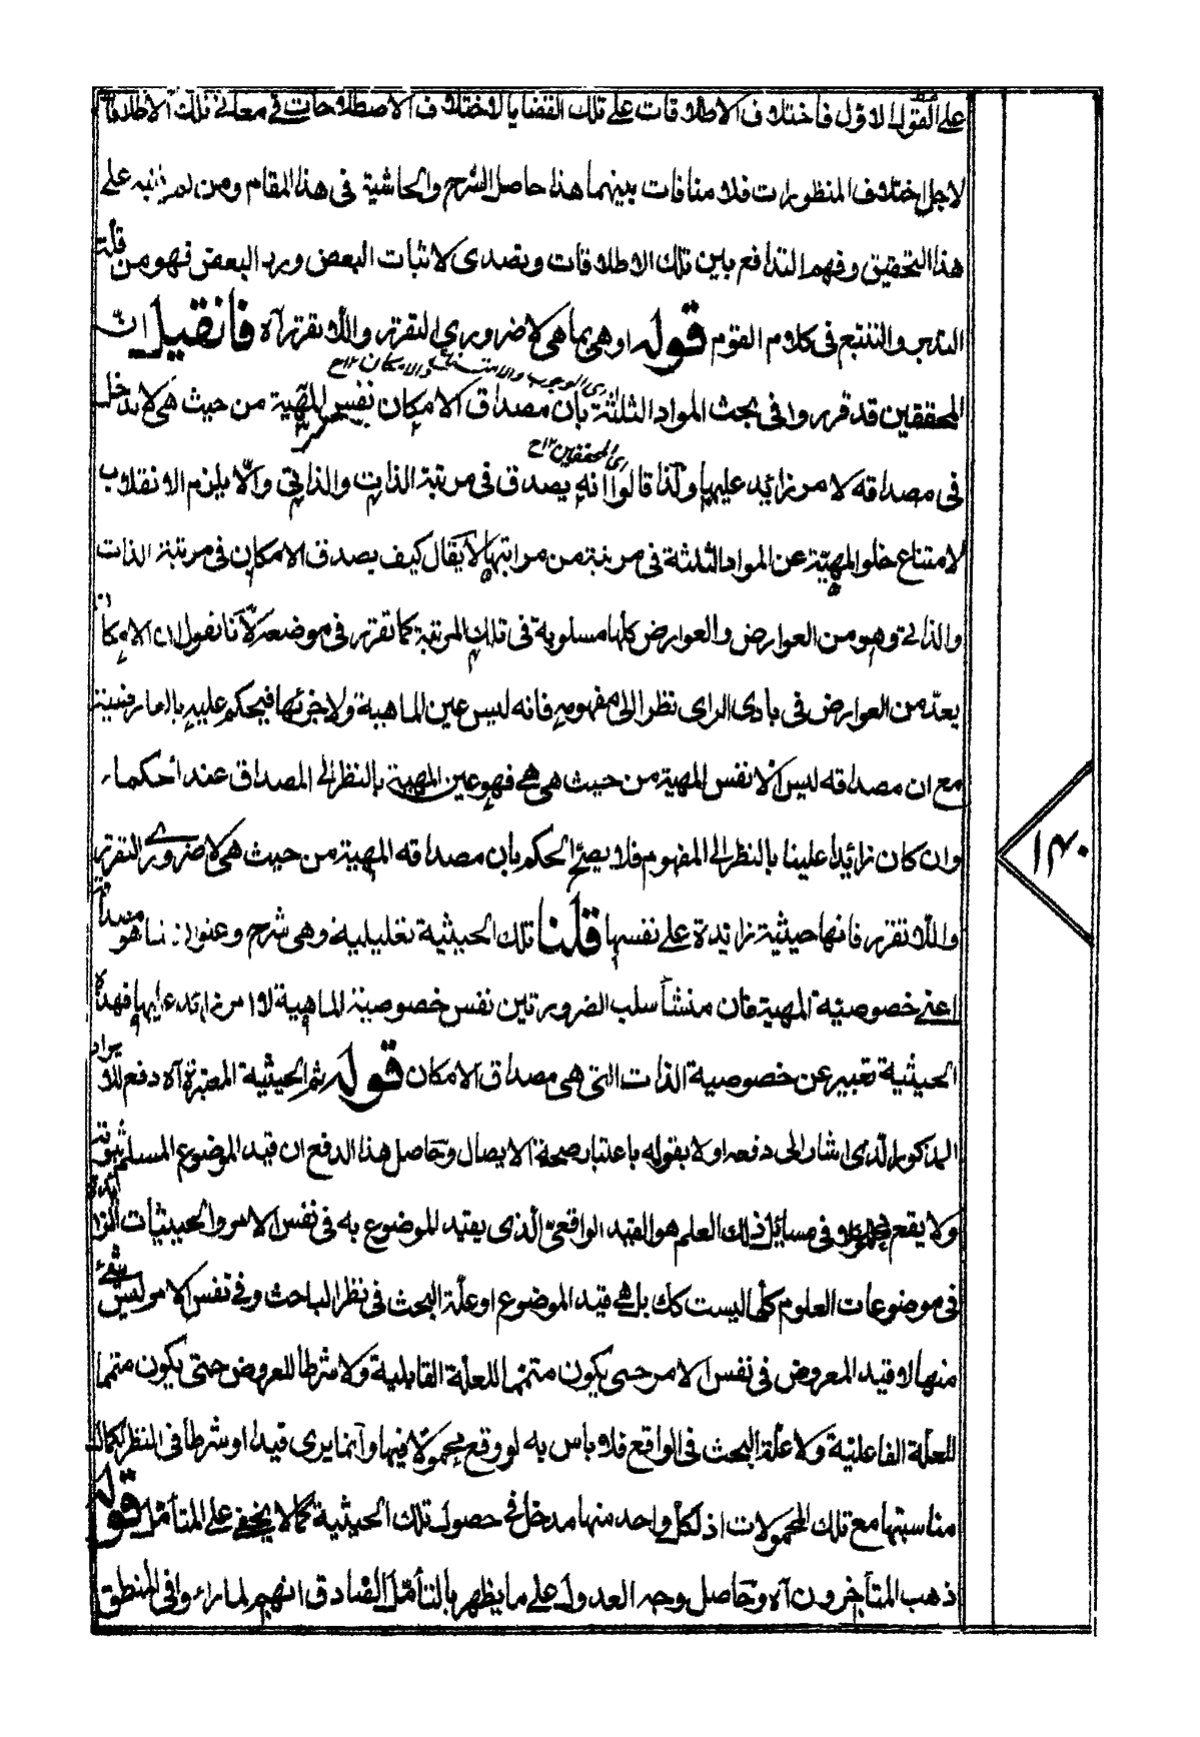 على القول الاول فاختلاف الاطلاقات على تلك القضايا لاختلاف الاصطلاحات في معاني تلك الاطلاقات
لاجل اختلاف المنظورات فلا منافات بينهما هذا حاصل الشرح والحاشية في هذا المقام ومن لم يتنبه على
هذا التحقيق وفهم التدافع بين تلك الاطلاقات وتصدى لاثبات البعض ورد البعض فهو من قلة
التدبر والتتبع في كلام القوم قوله او هي بما هي لا ضروري التقرر واللاتقرر آه فان قيل ان
اى الوجوب والامتناع والامكان ١٢ ح
المحققين قد قرروا في بحث المواد الثلثة بان مصداق الامكان نفس المهية من حيث هي لا مدخل
اى المحققين ١٢ ح
في مصداقه لامر زائد عليها ولذا قالوا انه يصدق في مرتبة الذات والذاتي والا يلزم الانقلاب
لامتناع خلو المهية عن المواد الثلثة في مرتبة من مراتبها لا يقال كيف يصدق الامكان في مرتبة الذات
والذاتي وهو من العوارض والعوارض كلها مسلوبة في تلك المرتبة كما تقرر في موضعه لانا نقول ان الامكان
يعد من العوارض في بادى الراى نظرا الى مفهومه فانه ليس عين الماهية ولا جزئها فيحكم عليه بالعارضية
مع ان مصداقه ليس الا نفس المهية من حيث هي هي فهو عين المهية بالنظر الى المصداق عند الحكماء
وان كان زائدا علينا بالنظر الى المفهوم فلا يصح الحكم بان مصداقه المهية من حيث هي لا ضروري التقرر
واللاتقرر فانها حيثية زائدة على نفسها قلنا تلك الحيثية تعليلية وهي شرح وعنوان لما هو مصداقه
اعني خصوصية المهية فان منشأ سلب الضرورتين نفس خصوصية الماهية لا امر زائد عليها فهذه
الحيثية تعبير عن خصوصية الذات التى هي مصداق الامكان قوله ثم الحيثية المعتبرة آه دفع للايراد
المذكور الذى اشار الى دفعه اولا بقوله باعتبار صحة الايصال وحاصل هذا الدفع ان قيد الموضوع المسلم ثبوته
ولا يقع محمولا في مسائل ذلك العلم هو القيد الواقعي الذى يقيد الموضوع به في نفس الامر والحيثيات الزائدة
في موضوعات العلوم كلها ليست كك بل هي قيد الموضوع او علة البحث في نظر الباحث وفي نفس الامر ليس شئ
منها لا قيد المعروض في نفس الامر حتى يكون متمما للعلة القابلية ولا شرطا للعروض حتى يكون متمما
للعلة الفاعلية ولا علة البحث في الواقع فلا باس به لو وقع محمولا فيها وانما يرى قيدا او شرطا في النظر لكمال
مناسبتها مع تلك المحمولات اذ لكل واحد منها مدخل في حصول تلك الحيثية كما لا يخفى على المتأمل قوله
ذهب المتأخرون آه وحاصل وجه العدول على ما يظهر بالتأمل الصادق انهم لما رءوا في المنطق
١٤٠